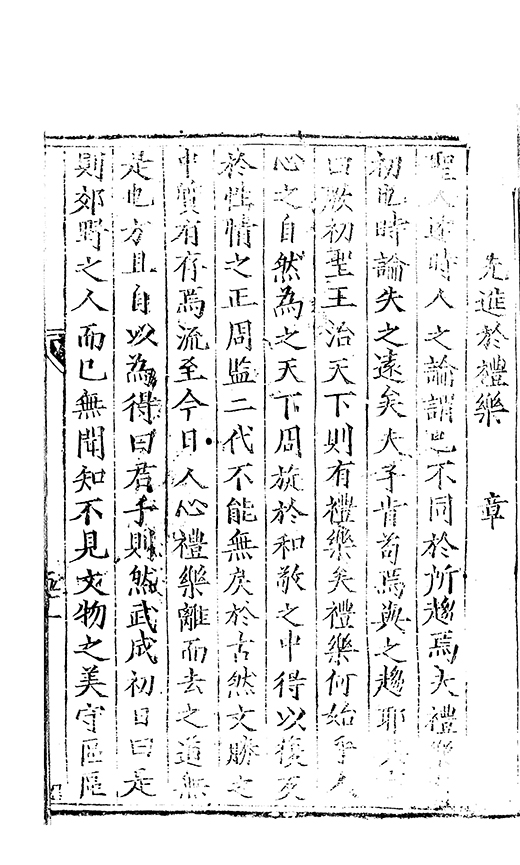 先進於禮樂 章
聖人述時人之論謂己不同於所趨焉夫禮樂
初也時論失之遠矣夫子肯苟焉與之趨耶夫
曰厥初聖王治天下則有禮樂矣禮樂何始乎人
心之自然為之天下周旋於和敬之中得以復
於性情之正周監二代不能無戾於古然文勝之
中質有存焉流至今日人心禮樂離而去之道無
是也方且自以為得曰君子則然武成初日曰是
則郊野之人而已無聞知不見文物之美守區區